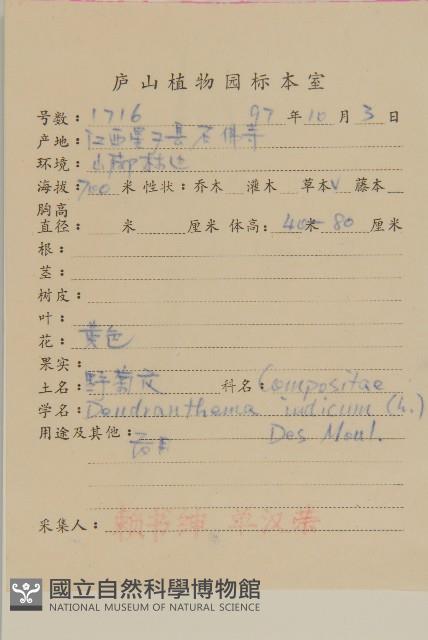 庐山植物园标本室
号数：1716 97年10月3日
产地：江西星子县石佛寺
环境：山脚林边
海拔：700米 性状：乔木 灌木 草本√ 藤本
胸高
直径： 米 厘米 体高：40米－80厘米
根：
茎：
树皮：
叶：
花：黄色
果实：
土名：野菊花 科名：Compositae
学名：Dendranthema indicum (L.)
用途及其他：药用 Des Moul.
采集人：赖书绅 单汉荣
國立自然科學博物館
NATIONAL MUSEUM OF NATURAL SCIENCE